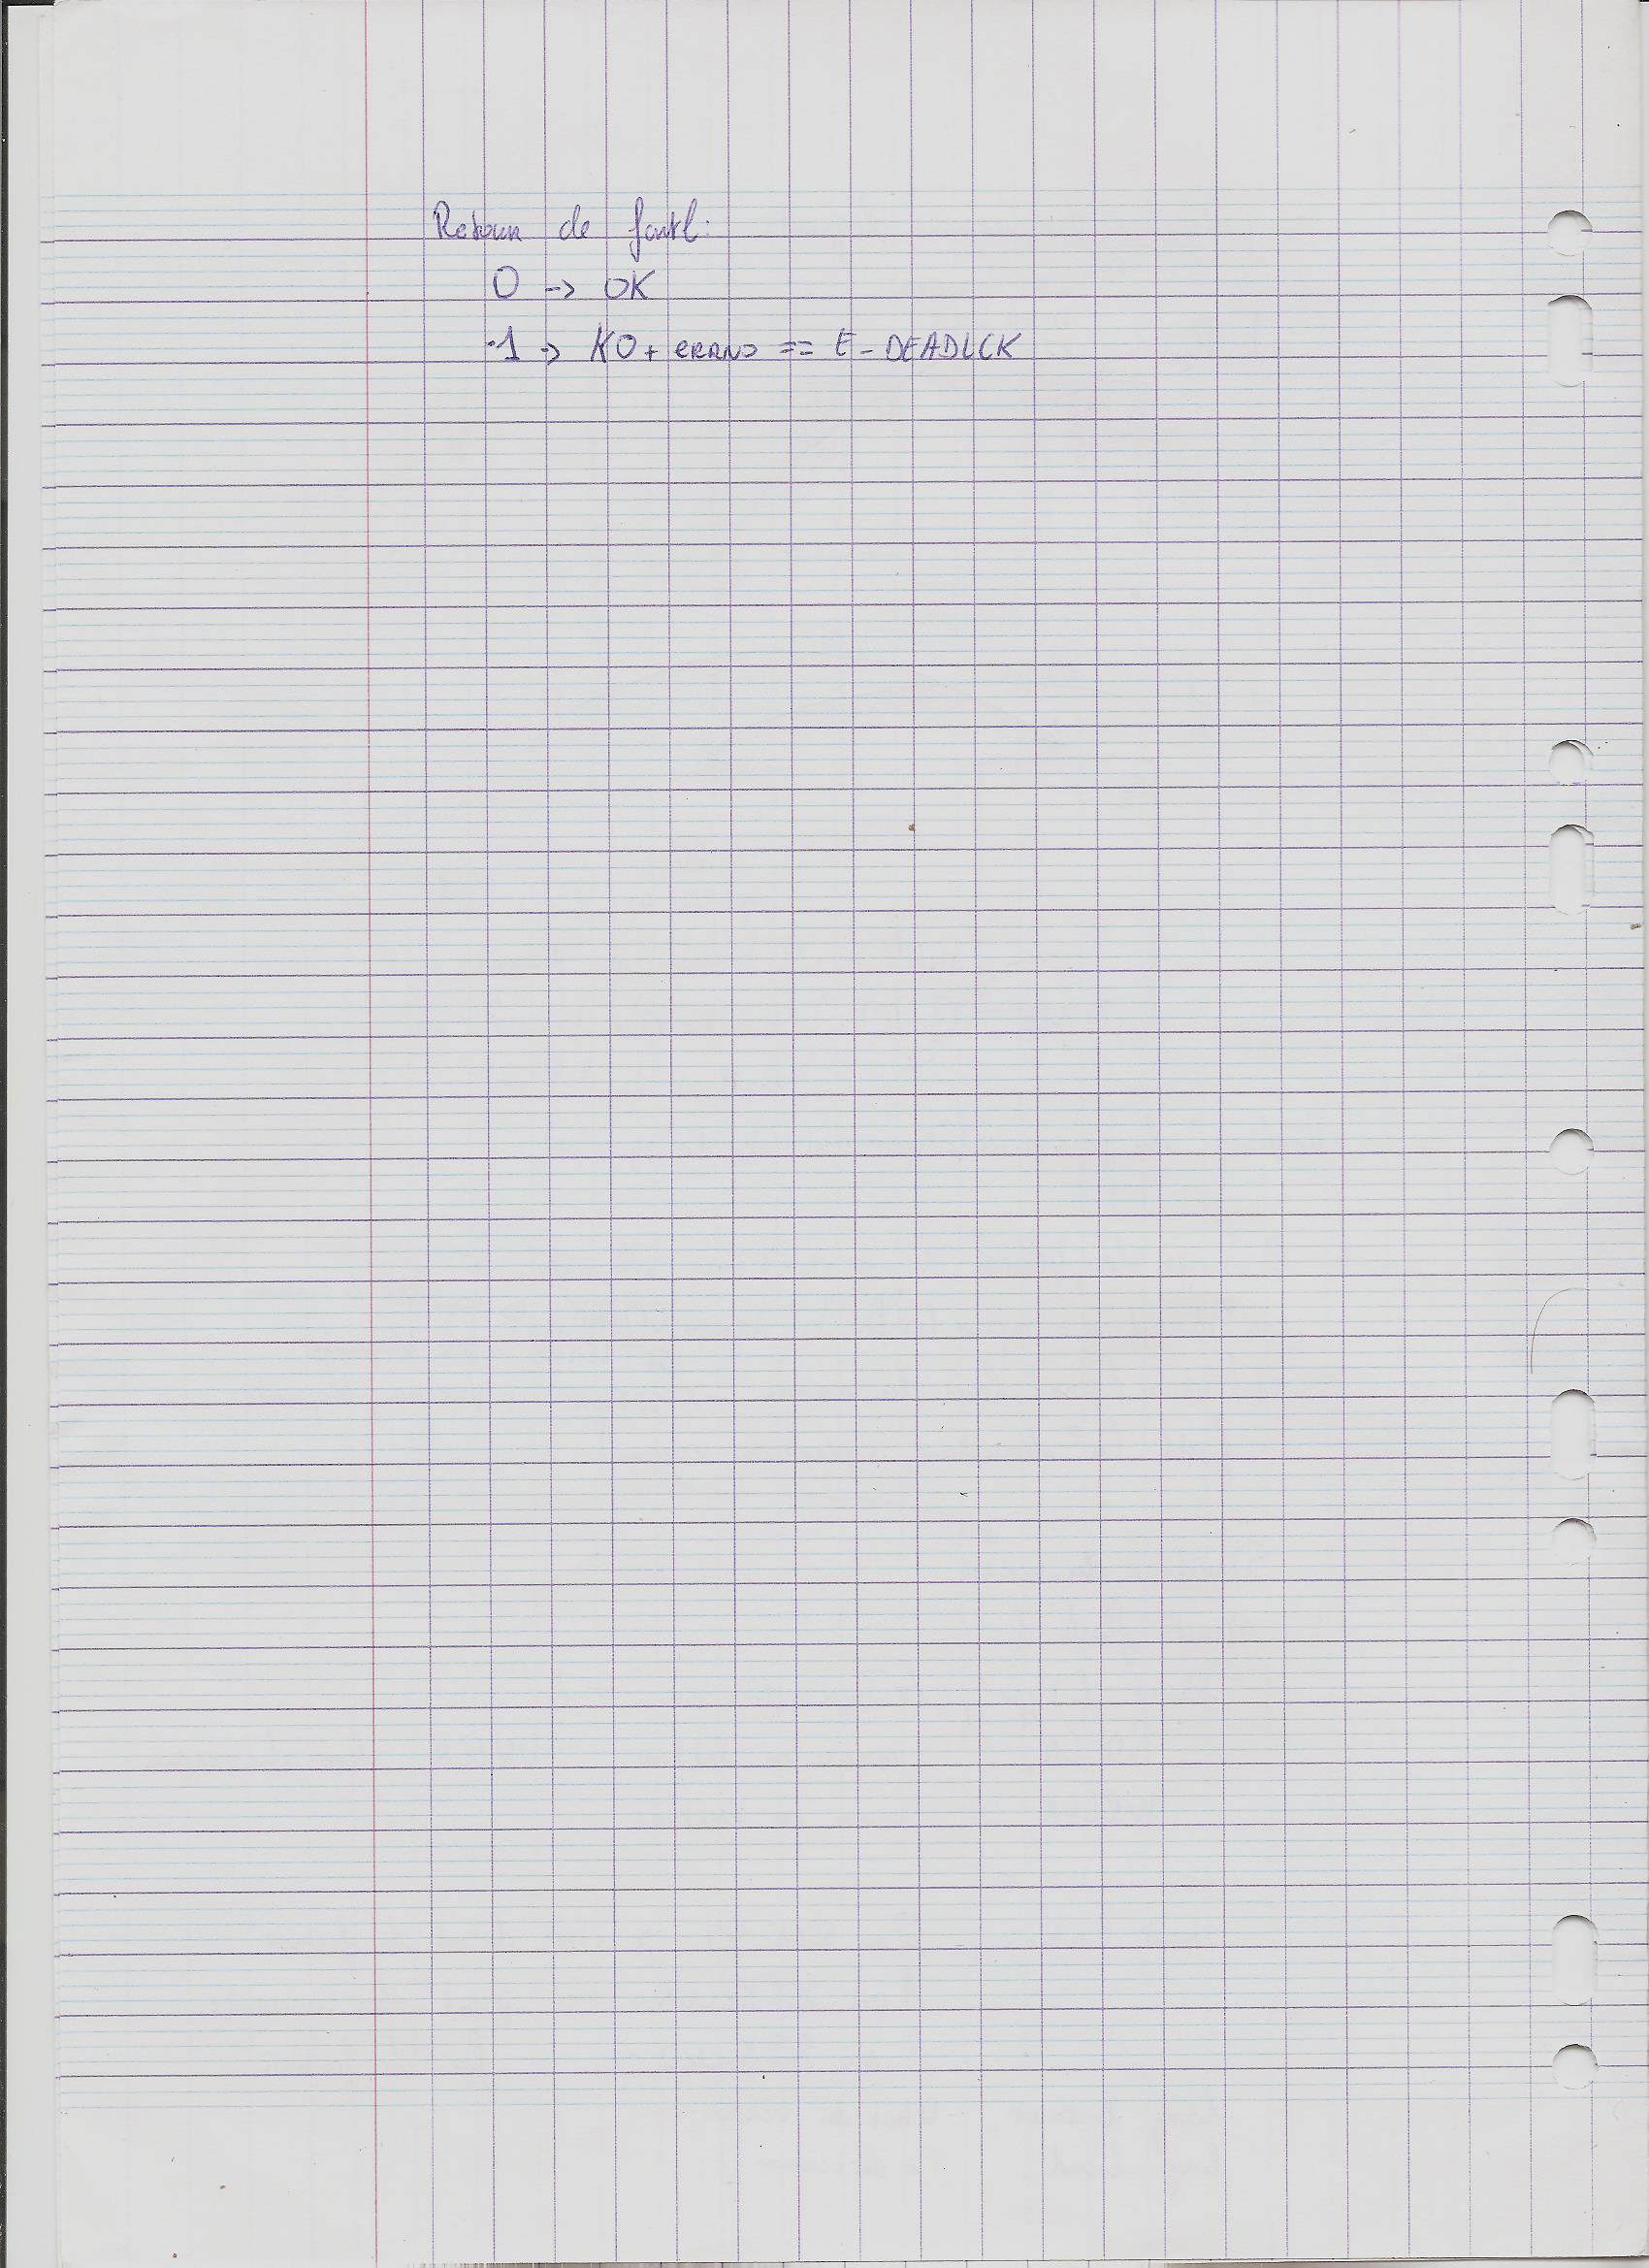 Retour de fcntl:
0 -> OK
-1 -> KO + ERRNO == E-DEADLCK